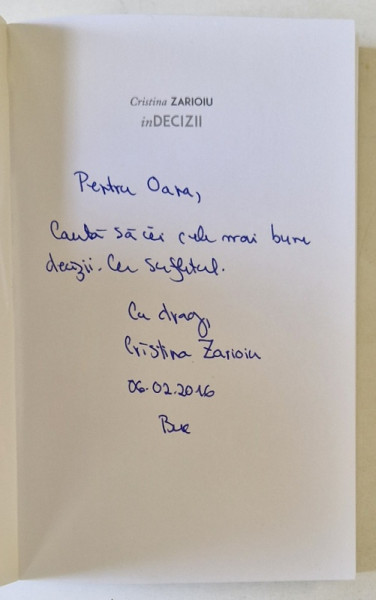 Cristina ZARIOIU
inDECIZII
Pentru Oana,
Caută să iei cele mai bune
decizii. Cu sufletul.
Cu drag,
Cristina Zarioiu
06.02.2016
Buc